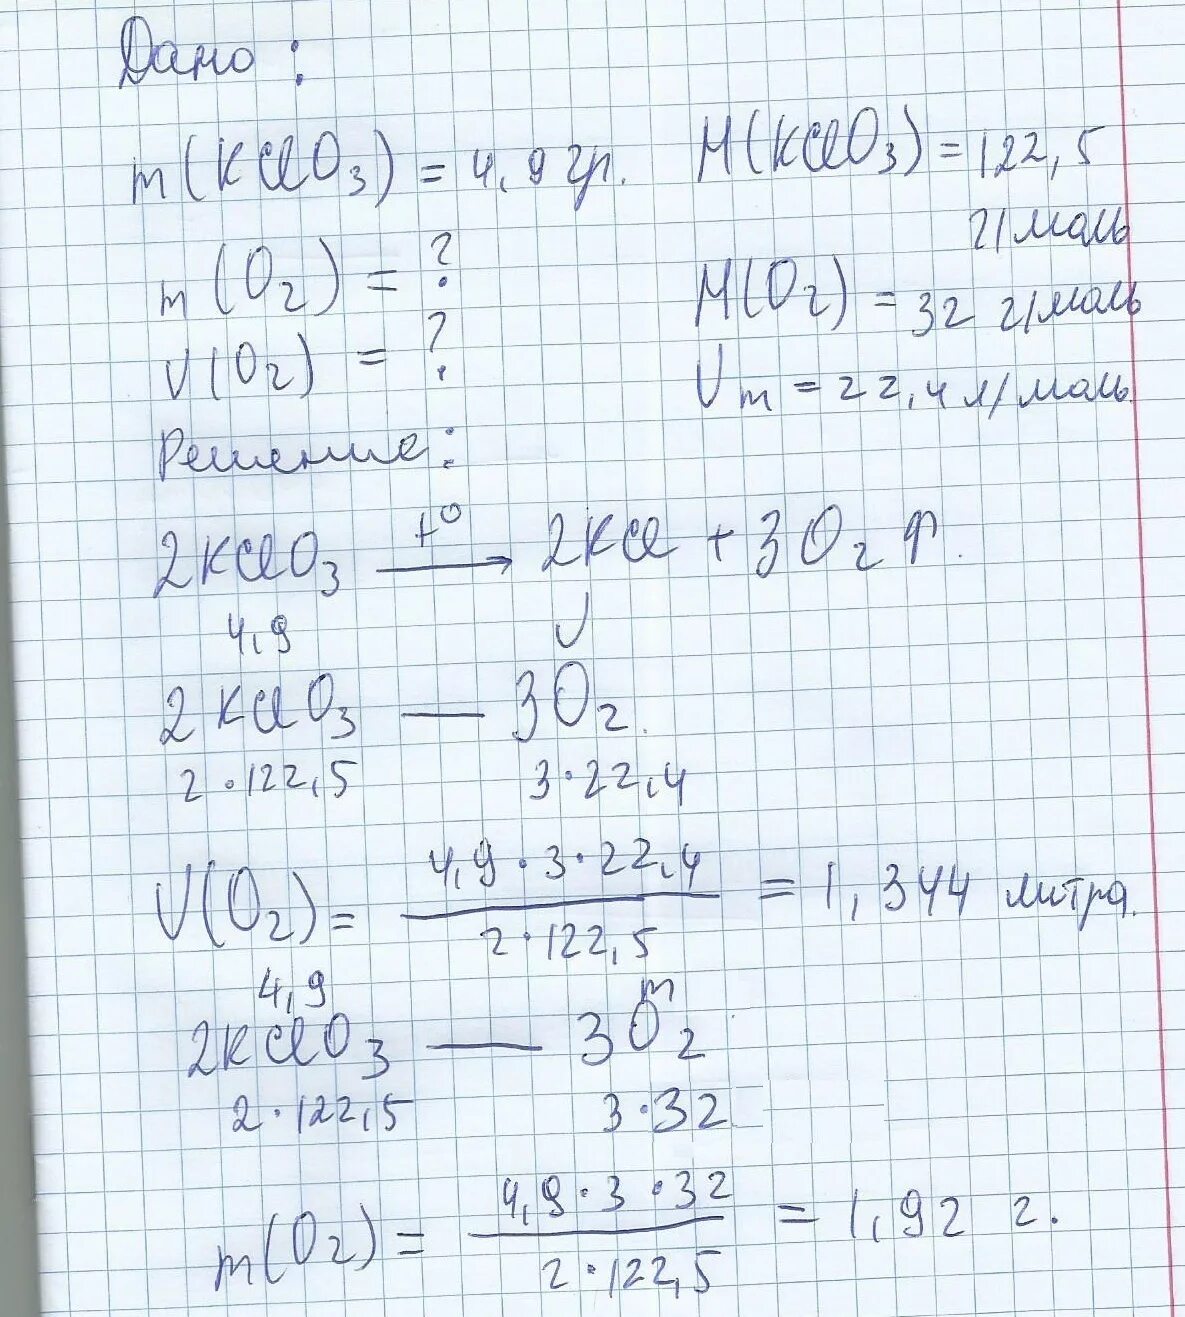 Дано:
m(KClO₃) = 4,9 гр. M(KClO₃) = 122,5
г/моль
m(O₂) = ? M(O₂) = 32 г/моль
V(O₂) = ? Vm = 22,4 л/моль.
Решение:
2KClO₃ —t°→ 2KCl + 3O₂↑.
4,9 V
2KClO₃ — 3O₂.
2·122,5 3·22,4
V(O₂) = (4,9·3·22,4)/(2·122,5) = 1,344 литра.
4,9 m
2KClO₃ — 3O₂
2·122,5 3·32
m(O₂) = (4,9·3·32)/(2·122,5) = 1,92 г.